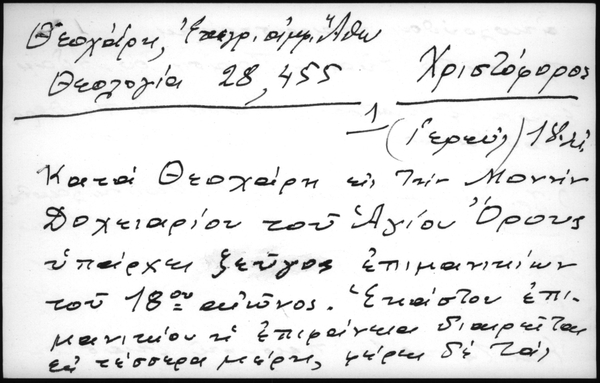 Θεοχάρη, Ἐπιγρ. ἀμφ. Ἄθω
Θεολογία 28, 455 Χριστόφορος
1 (Ἱερεύς) 18. αἰ.
Κατά Θεοχάρη εἰς τήν Μονήν
Δοχειαρίου τοῦ Ἁγίου Ὄρους
ὑπάρχει ζεῦγος ἐπιμανικίων
τοῦ 18ου αἰῶνος. Ἑκάστου ἐπι-
μανικίου ἡ ἐπιφάνεια διαιρεῖται
εἰς τέσσερα μέρη, φέρει δέ τάς